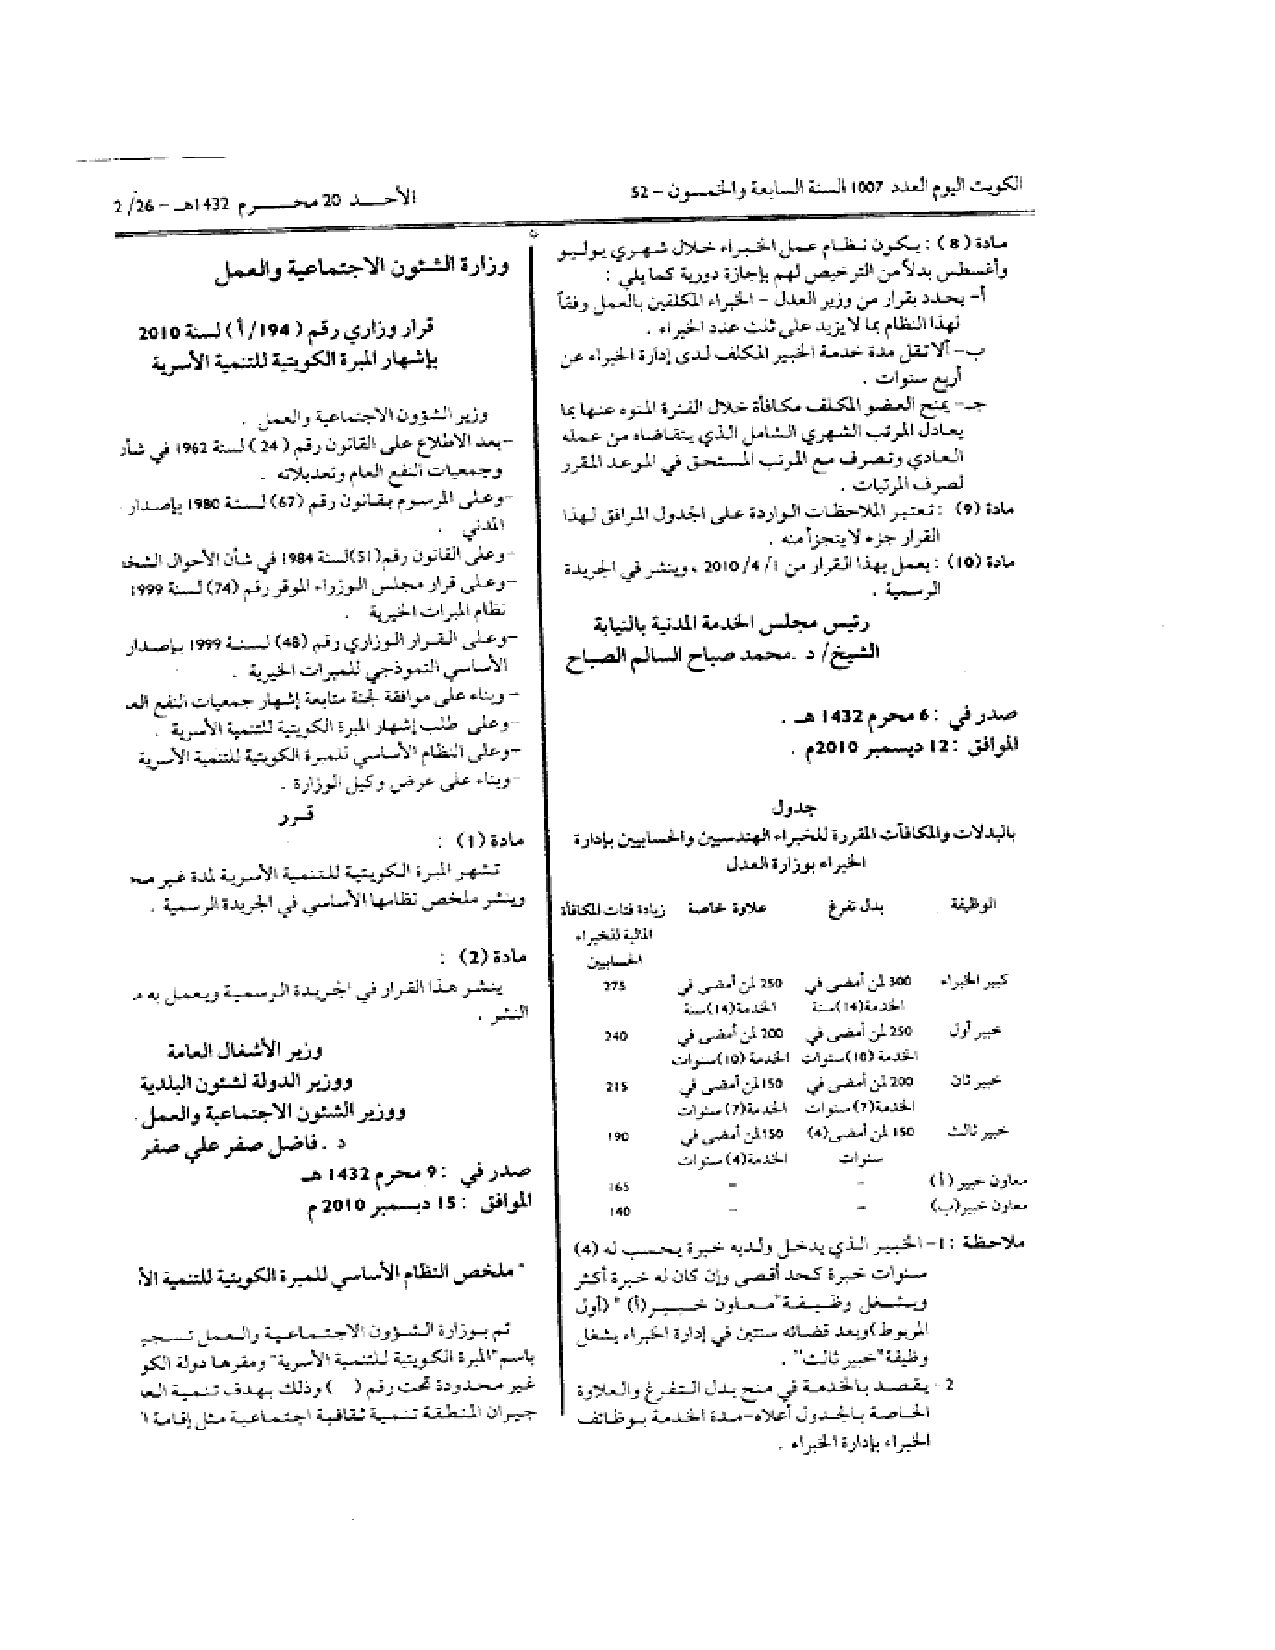 الكويت اليوم العدد 1007 السنة السابعة والخمسون - 52
الأحد 20 محرم 1432هـ - 2/26
مادة (8) : يكون نظام عمل الخبراء خلال شهري يوليو
وأغسطس بدلاً من الترخيص لهم بإجازة دورية كما يلي :
أ- يحدد بقرار من وزير العدل - الخبراء المكلفين بالعمل وفقاً
لهذا النظام بما لا يزيد على ثلث عدد الخبراء .
ب- ألا تقل مدة خدمة الخبير المكلف لدى إدارة الخبراء عن
أربع سنوات .
جـ- يمنح العضو المكلف مكافأة خلال الفترة المنوه عنها بما
يعادل المرتب الشهري الشامل الذي يتقاضاه من عمله
العادي وتصرف مع المرتب المستحق في الموعد المقرر
لصرف المرتبات .
مادة (9) : تعتبر الملاحظات الواردة على الجدول المرافق لهذا
القرار جزء لا يتجزأ منه .
مادة (10) : يعمل بهذا القرار من 2010/4/1 ، وينشر في الجريدة
الرسمية .
رئيس مجلس الخدمة المدنية بالنيابة
الشيخ/ د .محمد صباح السالم الصباح
صدر في : 6 محرم 1432 هـ .
الموافق : 12 ديسمبر 2010م .
جدول
بالبدلات والمكافآت المقررة للخبراء الهندسيين والحسابيين بإدارة
الخبراء بوزارة العدل
الوظيفة بدل تفرغ علاوة خاصة زيادة فئات المكافأة
المالية للخبراء
الحسابيين
كبير الخبراء 300 لمن أمضى في 250 لمن أمضى في 275
الخدمة (14) سنة الخدمة (14) سنة
خبير أول 250 لمن أمضى في 200 لمن أمضى في 240
الخدمة (10) سنوات الخدمة (10) سنوات
خبير ثان 200 لمن أمضى في 150 لمن أمضى في 215
الخدمة (7) سنوات الخدمة (7) سنوات
خبير ثالث 150 لمن أمضى (4) 150 لمن أمضى في 190
سنوات الخدمة (4) سنوات
معاون خبير (أ) - - 165
معاون خبير (ب) - - 140
ملاحظة : 1- الخبير الذي يدخل ولديه خبرة يحسب له (4)
سنوات خبرة كحد أقصى وإن كان له خبرة أكثر
ويشغل وظيفة "معاون خبير (أ) " (أول
المربوط) وبعد قضائه سنتين في إدارة الخبراء يشغل
وظيفة "خبير ثالث" .
2 - يقصد بالخدمة في منح بدل التفرغ والعلاوة
الخاصة بالجدول أعلاه - مدة الخدمة بوظائف
الخبراء بإدارة الخبراء .
وزارة الشئون الاجتماعية والعمل
قرار وزاري رقم (194/ أ) لسنة 2010
بإشهار المبرة الكويتية للتنمية الأسرية
وزير الشؤون الاجتماعية والعمل .
-بعد الاطلاع على القانون رقم (24) لسنة 1962 في شأن
وجمعيات النفع العام وتعديلاته .
-وعلى المرسوم بقانون رقم (67) لسنة 1980 بإصدار
المدني .
-وعلى القانون رقم (51) لسنة 1984 في شأن الأحوال الشخ
-وعلى قرار مجلس الوزراء الموقر رقم (74) لسنة 1999
نظام المبرات الخيرية .
-وعلى القرار الوزاري رقم (48) لسنة 1999 بإصدار
الأساسي النموذجي للمبرات الخيرية .
- وبناء على موافقة لجنة متابعة إشهار جمعيات النفع الع
-وعلى طلب إشهار المبرة الكويتية للتنمية الأسرية .
-وعلى النظام الأساسي للمبرة الكويتية للتنمية الأسرية
-وبناء على عرض وكيل الوزارة .
قـرر
مادة (1) :
تشهر المبرة الكويتية للتنمية الأسرية لمدة غير مح
وينشر ملخص نظامها الأساسي في الجريدة الرسمية .
مادة (2) :
ينشر هذا القرار في الجريدة الرسمية ويعمل به م
النشر .
وزير الأشغال العامة
ووزير الدولة لشئون البلدية
ووزير الشئون الاجتماعية والعمل .
د . فاضل صفر علي صفر
صدر في : 9 محرم 1432 هـ
الموافق : 15 ديسمبر 2010 م
* ملخص النظام الأساسي للمبرة الكويتية للتنمية الأ
تم بوزارة الشؤون الاجتماعية والعمل تسجي
باسم "المبرة الكويتية للتنمية الأسرية" ومقرها دولة الكو
غير محدودة تحت رقم ( ) وذلك بهدف تنمية الع
جيران المنطقة تنمية ثقافية اجتماعية مثل إقامة ا